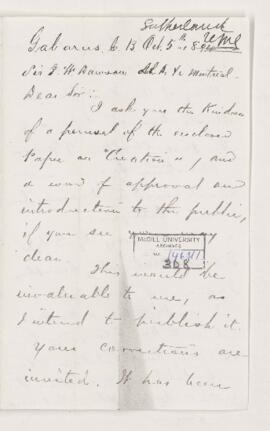 Sutherland
Gabarus, C. B Oct. 5th 1892
Sir J. W Dawson LL. D. &c Montreal.
Dear Sir:
I ask you the kindness
of a perusal of the enclosed
Paper on "Creation", and
a word of approval and
introduction to the public,
if you see your way
clear.
McGILL UNIVERSITY
ARCHIVES
308
This would be
invaluable to me, as
I intend to publish it.
Your corrections are
invited. It has been